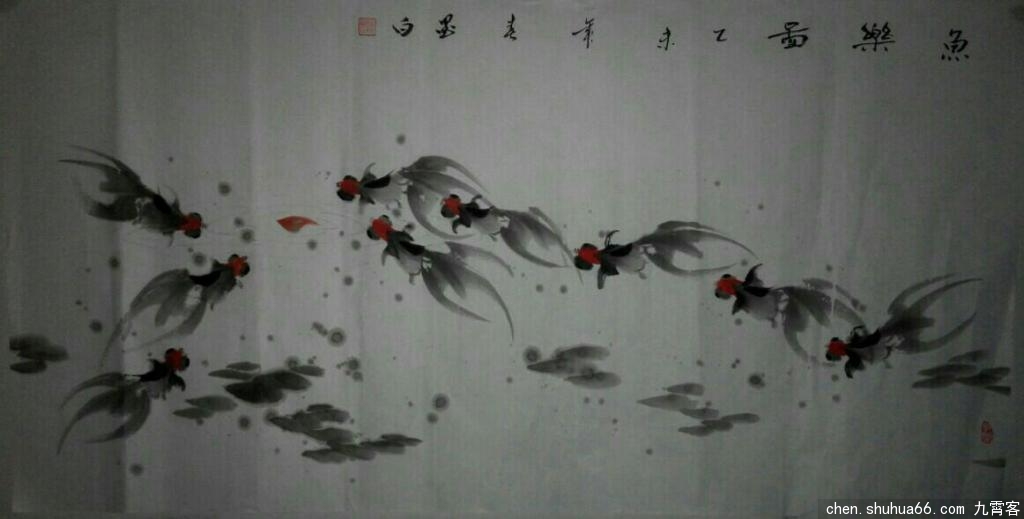 魚樂圖乙未年春墨白
chen.shuhua66.com 九霄客